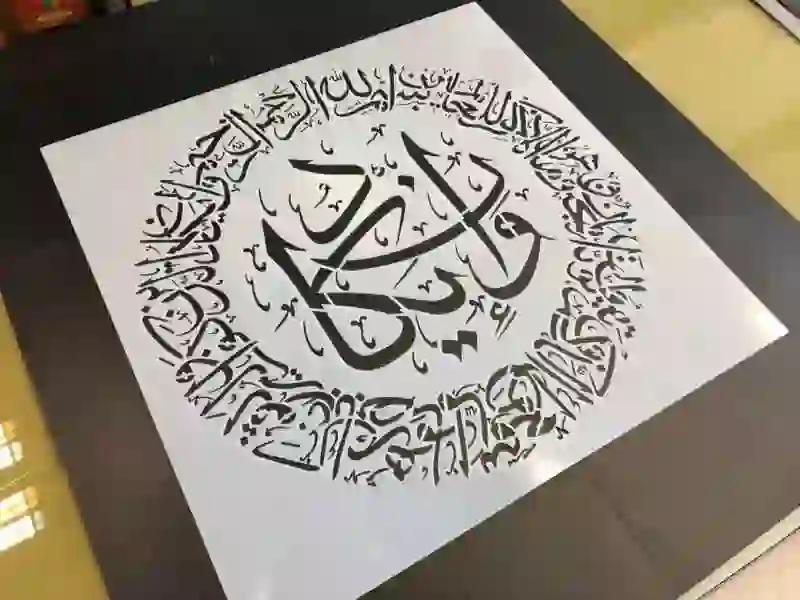 بسم الله الرحمن الرحيم وإن يكاد الذين كفروا ليزلقونك بأبصارهم لما سمعوا الذكر ويقولون إنه لمجنون وما هو إلا ذكر للعالمين
وإن يكاد